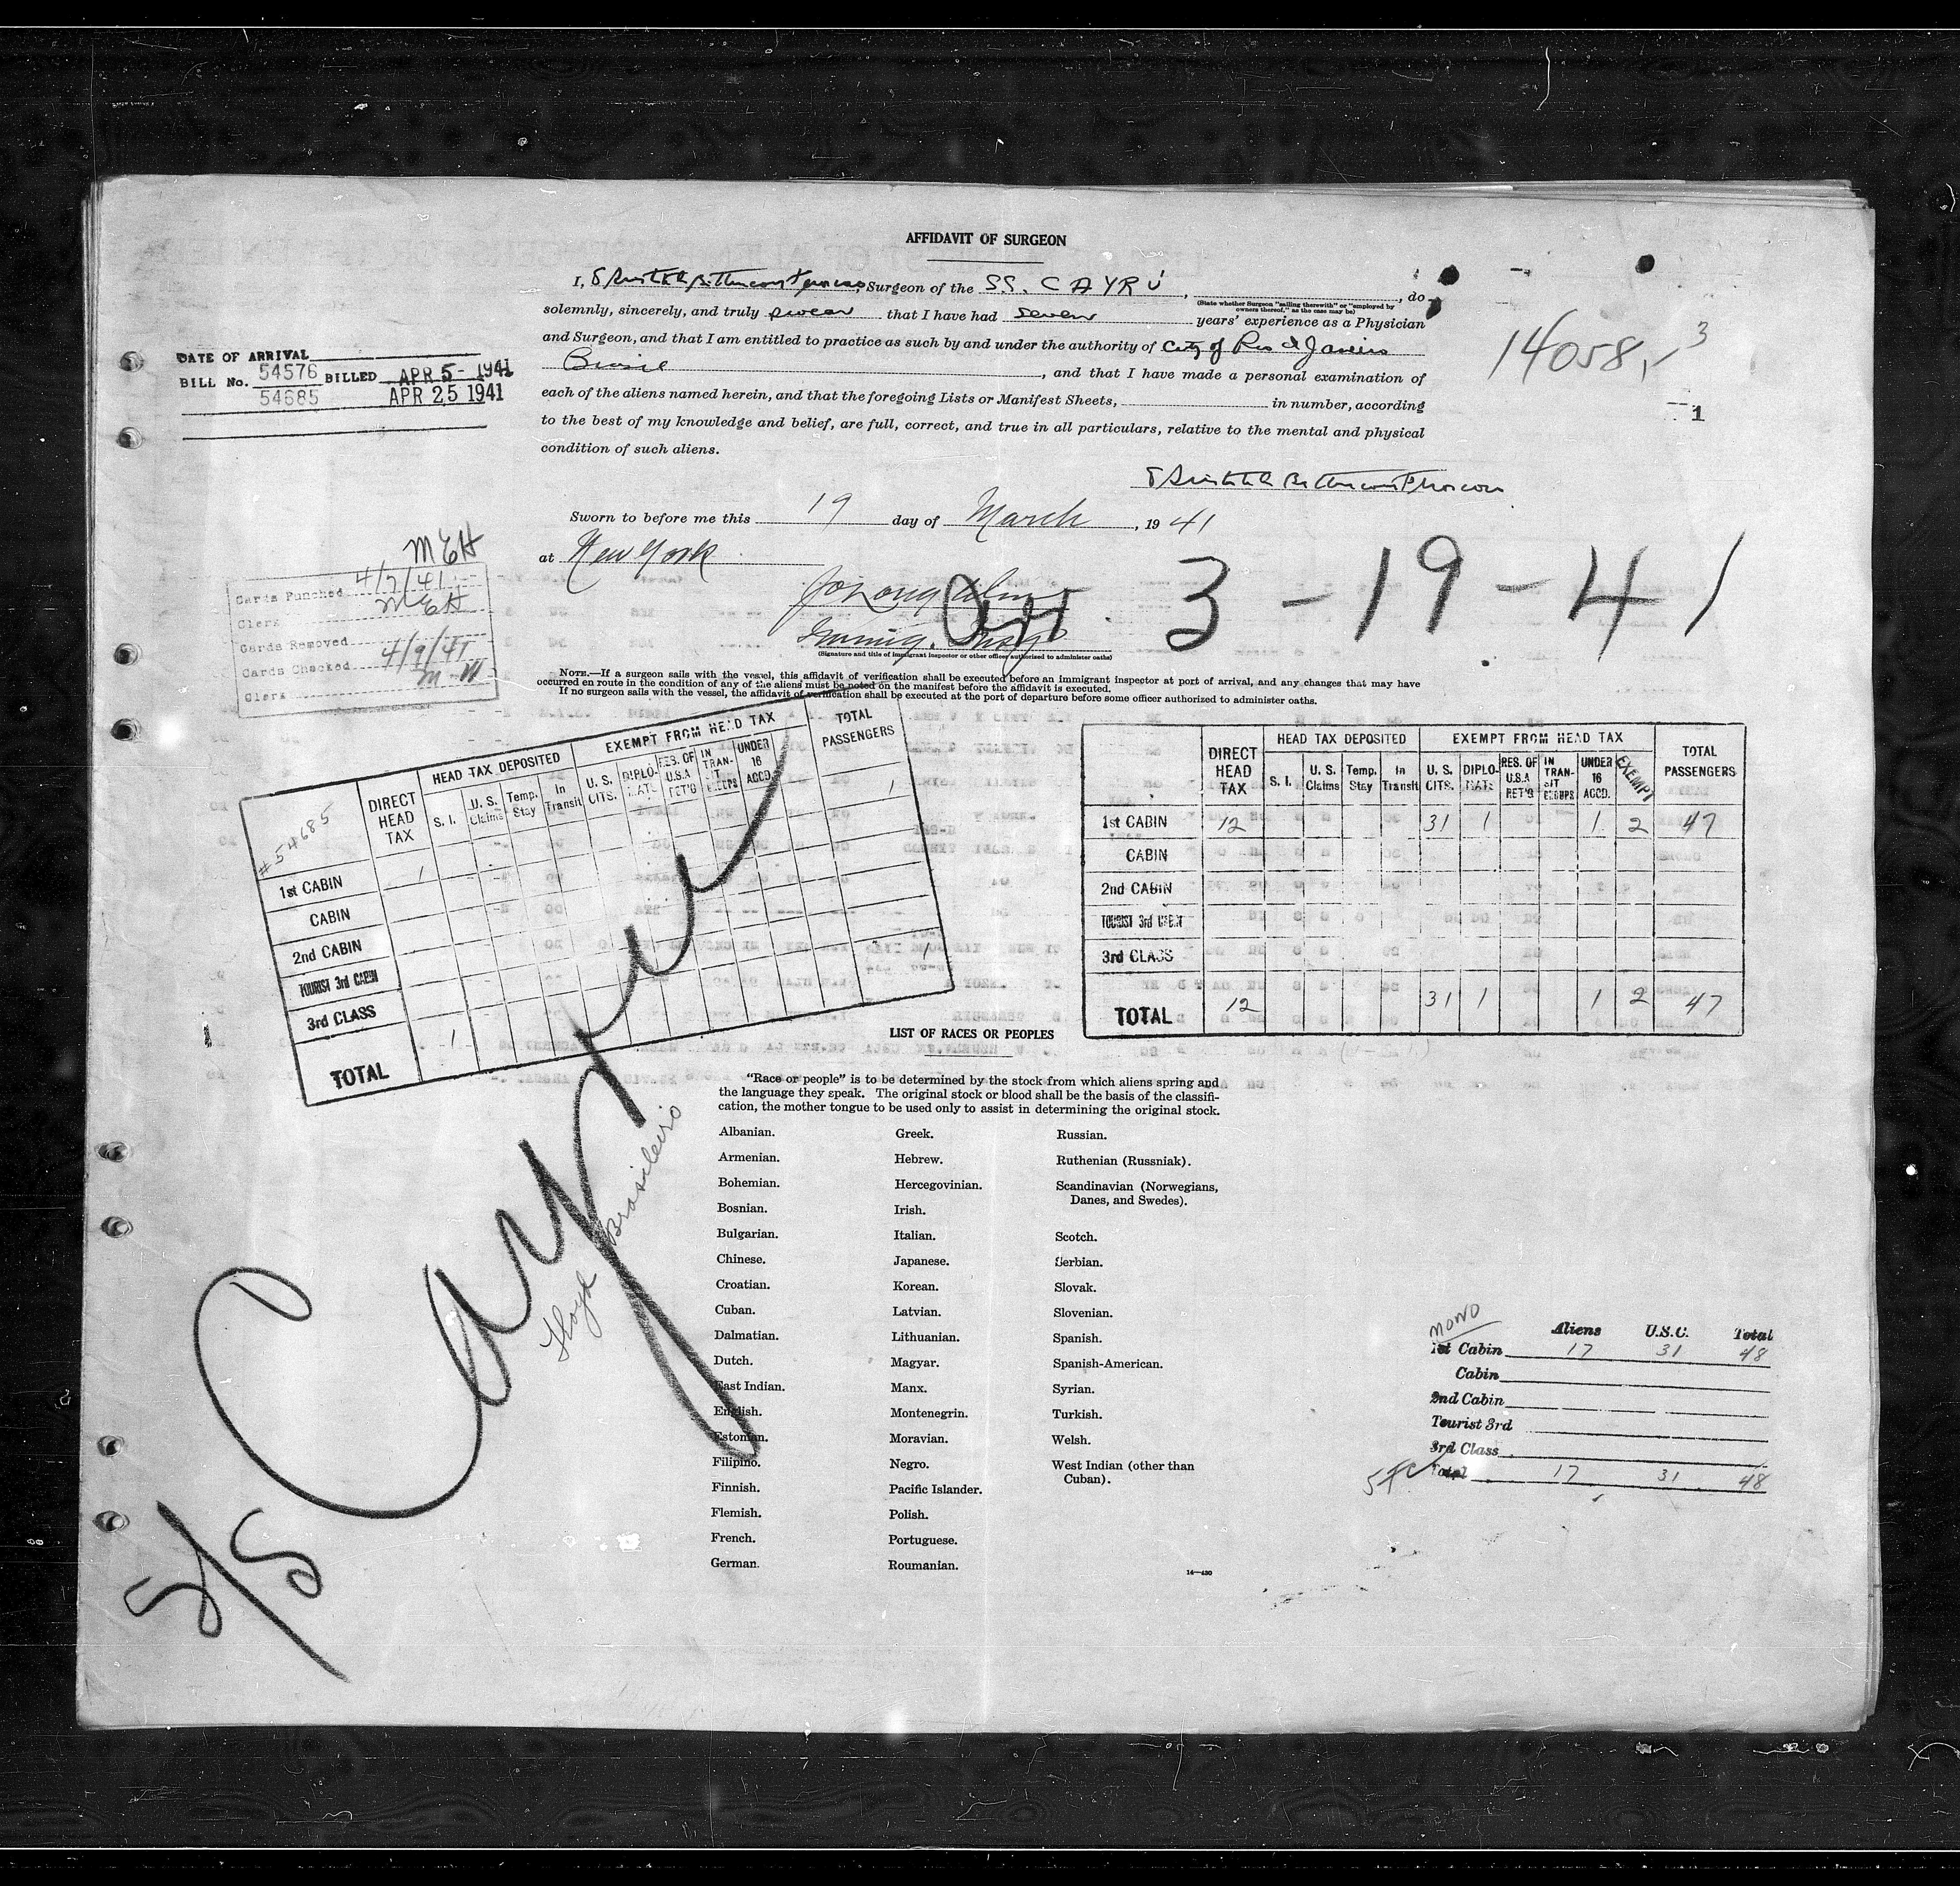 AFFIDAVIT OF SURGEON
I, , Surgeon of the SS. CAYRÚ , , do
(State whether Surgeon "sailing therewith" or "employed by owners thereof," as the case may be)
solemnly, sincerely, and truly swear that I have had seven years' experience as a Physician
and Surgeon, and that I am entitled to practice as such by and under the authority of City of Rio de Janeiro
, and that I have made a personal examination of
each of the aliens named herein, and that the foregoing Lists or Manifest Sheets, in number, according
to the best of my knowledge and belief, are full, correct, and true in all particulars, relative to the mental and physical
condition of such aliens.
14058,-3
1
DATE OF ARRIVAL
BILL No. 54576 BILLED APR 5 - 1941
54685 APR 25 1941
Sworn to before me this 19 day of March , 19 41
at New York
Immig. Insp
(Signature and title of immigrant inspector or other officer authorized to administer oaths)
3-19-41
MEH
Cards Punched 4/7/41
Clerk MEH
Cards Removed
Cards Checked 4/9/41
Clerk
NOTE.—If a surgeon sails with the vessel, this affidavit of verification shall be executed before an immigrant inspector at port of arrival, and any changes that may have
occurred en route in the condition of any of the aliens must be noted on the manifest before the affidavit is executed.
If no surgeon sails with the vessel, the affidavit of verification shall be executed at the port of departure before some officer authorized to administer oaths.
#54685
DIRECT HEAD TAX
HEAD TAX DEPOSITED
EXEMPT FROM HEAD TAX
TOTAL PASSENGERS
S. I. U. S. Claims Temp. Stay In Transit U. S. CITS. DIPLOMATS RES. OF U.S.A RET'G IN TRANSIT UNDER 16 ACCD.
1st CABIN 1 1
CABIN
2nd CABIN
TOURIST 3rd CABIN
3rd CLASS
TOTAL 1 1
DIRECT HEAD TAX
HEAD TAX DEPOSITED
EXEMPT FROM HEAD TAX
TOTAL PASSENGERS
S. I. U. S. Claims Temp. Stay In Transit U. S. CITS. DIPLOMATS RES. OF U.S.A RET'G IN TRANSIT UNDER 16 ACCD. EXEMPT
1st CABIN 12 31 1 1 2 47
CABIN
2nd CABIN
TOURIST 3rd CABIN
3rd CLASS
TOTAL 12 31 1 1 2 47
S/S Cayru
Lloyd Brasileiro
LIST OF RACES OR PEOPLES
"Race or people" is to be determined by the stock from which aliens spring and
the language they speak. The original stock or blood shall be the basis of the classifi-
cation, the mother tongue to be used only to assist in determining the original stock.
Albanian.
Armenian.
Bohemian.
Bosnian.
Bulgarian.
Chinese.
Croatian.
Cuban.
Dalmatian.
Dutch.
East Indian.
English.
Estonian.
Filipino.
Finnish.
Flemish.
French.
German.
Greek.
Hebrew.
Hercegovinian.
Irish.
Italian.
Japanese.
Korean.
Latvian.
Lithuanian.
Magyar.
Manx.
Montenegrin.
Moravian.
Negro.
Pacific Islander.
Polish.
Portuguese.
Roumanian.
Russian.
Ruthenian (Russniak).
Scandinavian (Norwegians,
Danes, and Swedes).
Scotch.
Serbian.
Slovak.
Slovenian.
Spanish.
Spanish-American.
Syrian.
Turkish.
Welsh.
West Indian (other than
Cuban).
14—430
MONO
Aliens U.S.C. Total
1st Cabin 17 31 48
Cabin
2nd Cabin
Tourist 3rd
3rd Class
Total 17 31 48